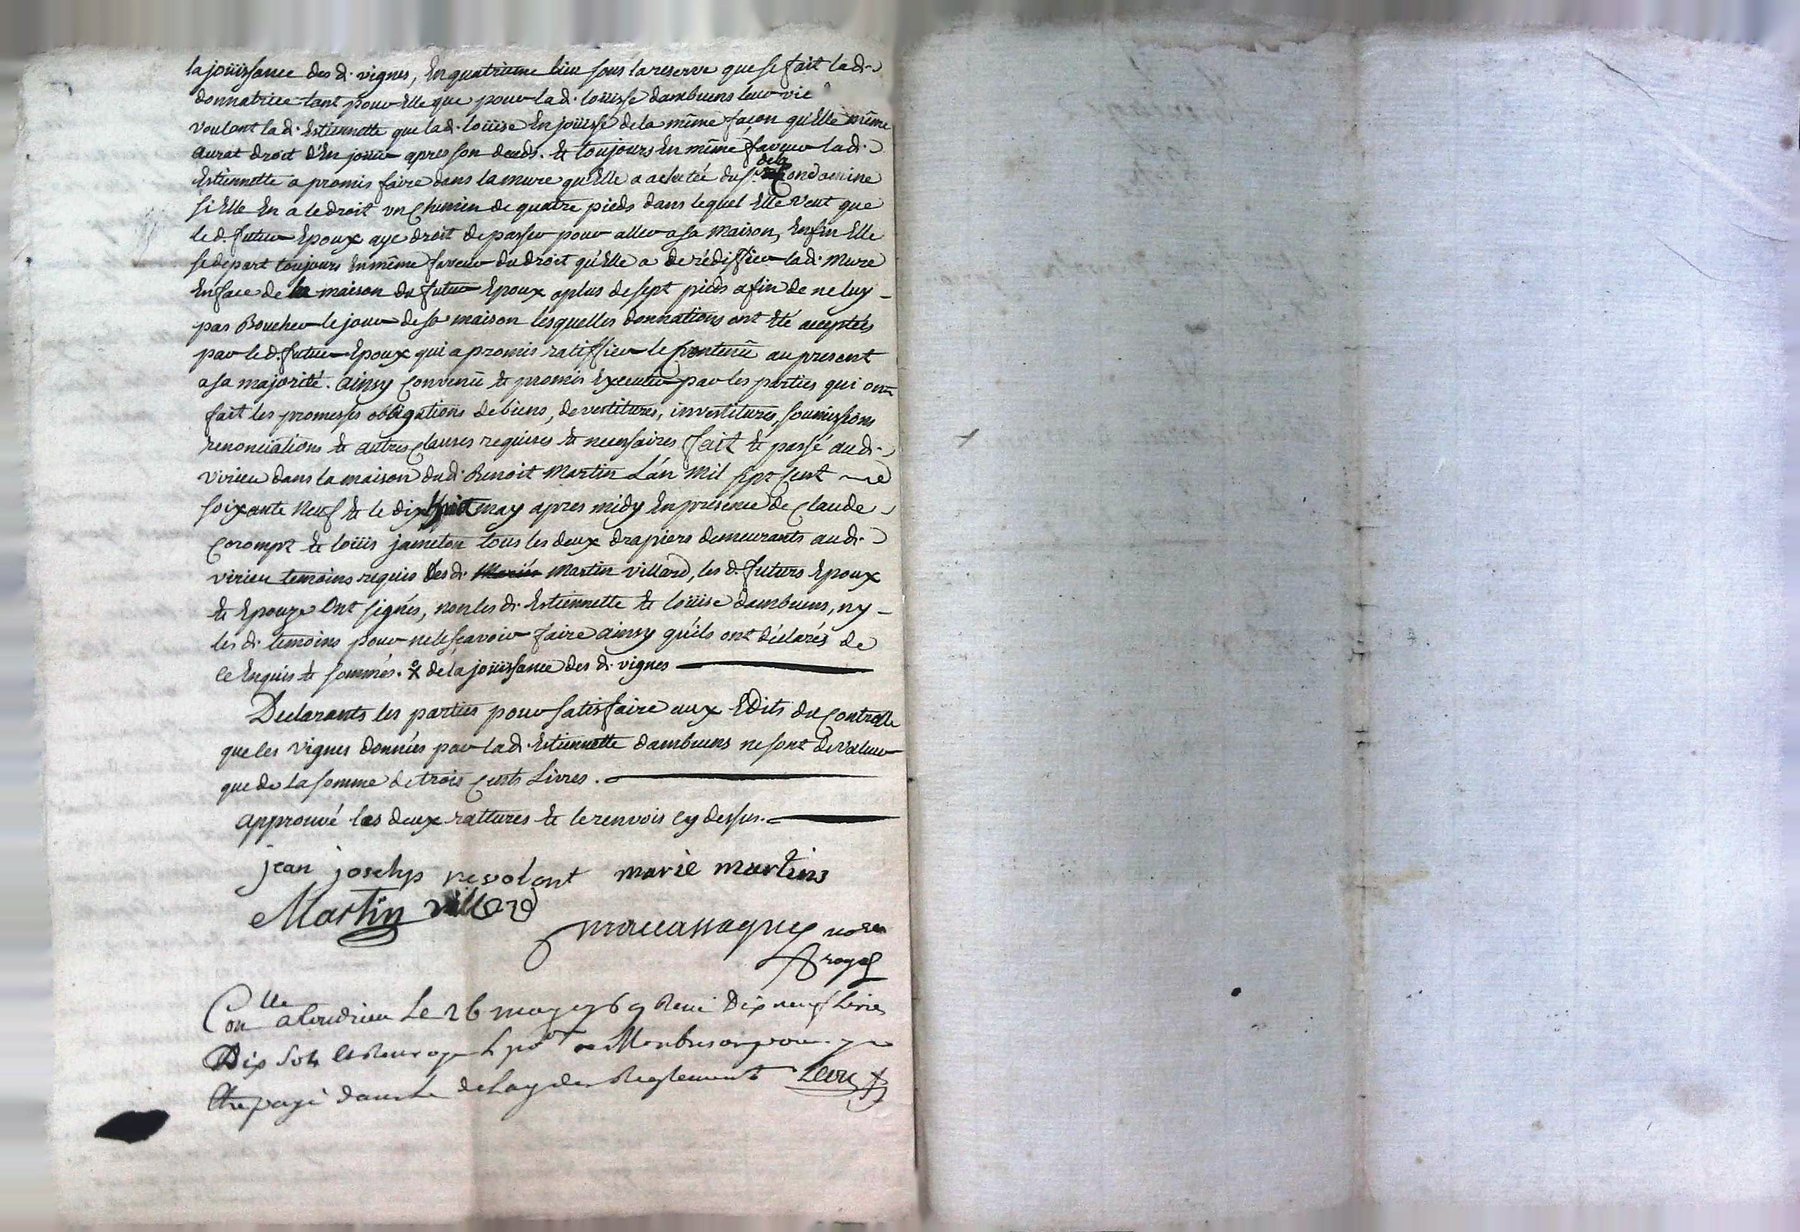 la joüissance des d. vignes, En quatrieme lieu sous la reserve que se fait lad.
donnatrice tant pour Elle que pour lad. loüisse dambuens leur vie
voulant lad. Estiennette que lad. loüise En joüisse de la même façon qu'Elle même
aurat droit d'En joüir apres son decès. Et toujours En même faveur lad.
Estiennette a promis faire dans la mure qu'Elle a achetée du Sr. de la Condamine
si Elle En a le droit un Chemin de quatre pieds dans lequel Elle veut que
le d. futur Epoux aye droit de passer pour aller a sa maison, Enfin Elle
se depart toujours En même faveur du droit qu'Elle a de rédiffier lad. mure
En face de la maison du futur Epoux a plus de sept pieds afin de ne luy
pas Boucher le jour de sa maison lesquelles donnations ont Eté acceptées
par le d. futur Epoux qui a promis ratiffier le Contenü au present
a sa majorité. ainsy Convenü Et promis Executer par les parties qui ont
fait les promesses obligations de biens, devestitures, investitures, soumissions
renonciations Et autres Clauses requises Et necessaires fait Et passé aud.
virieu dans la maison dud. Benoit Martin L'an mil sept Cent
soixante neuf Et le dix huit may apres midy En presence de Claude
Corompt Et loüis jameton tous les deux drapiers demeurants aud.
virieu temoins requis Les d. Martin villard, les d. futurs Epoux
Et Epouze Ont signés, non les d. Estiennette Et loüise dambuens, ny
les d. temoins pour ne le sçavoir faire ainsy qu'ils ont déclarés de
ce Enquis Et sommés. de la joüissance des d. vignes
Declarants les parties pour satisfaire aux Edits du Controlle
que les vignes données par lad. Estiennette dambuens ne sont de valeur
que de la somme de trois Cents Livres.
approuvé les deux rattures Et le renvois cy dessus.
jean joselhp revolont marie martins
Martin villard
nore
royal
Conlle a Condrieu Le 26 may 1769 Reçu Dix neuf Livres
Dix sols
Etre payé dans le delay des Reglements